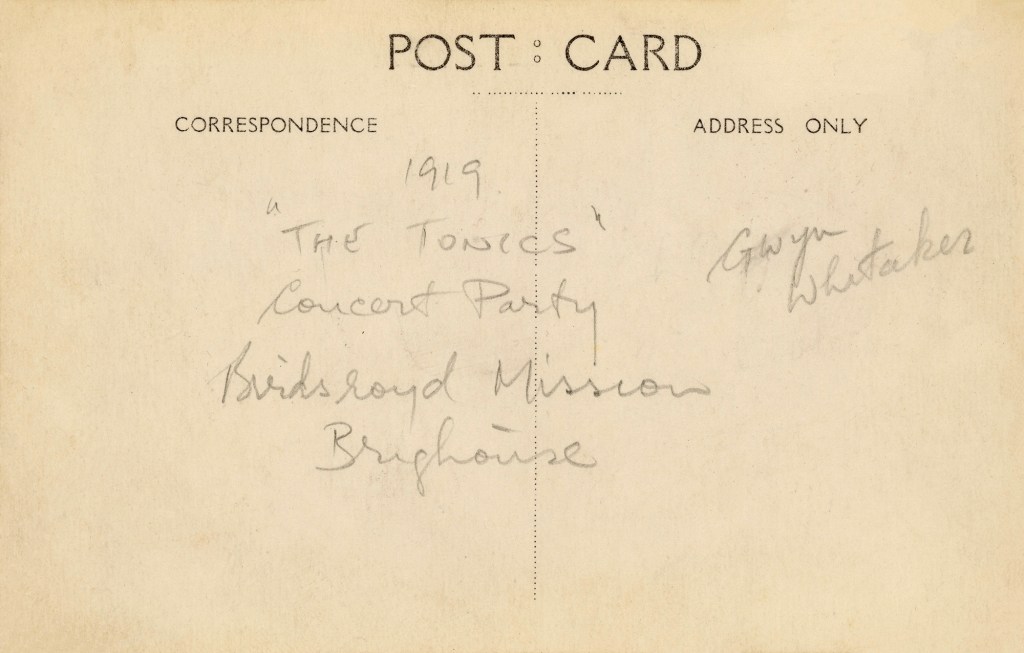 POST : CARD
CORRESPONDENCE
ADDRESS ONLY
1919
"THE TONICS"
Concert Party
Birdsroyd Mission
Brighouse
Gwyn
Whitaker